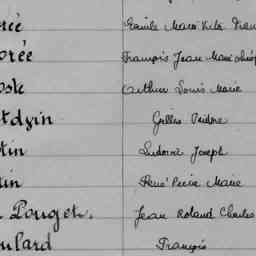 Emile Marie
orée François Jean Marie
Arthur Louis Marie
Gilles Isidore
tin Ludovic Joseph
tin René Pierre Marie
Pouget. Jean Roland Charles
oulard François